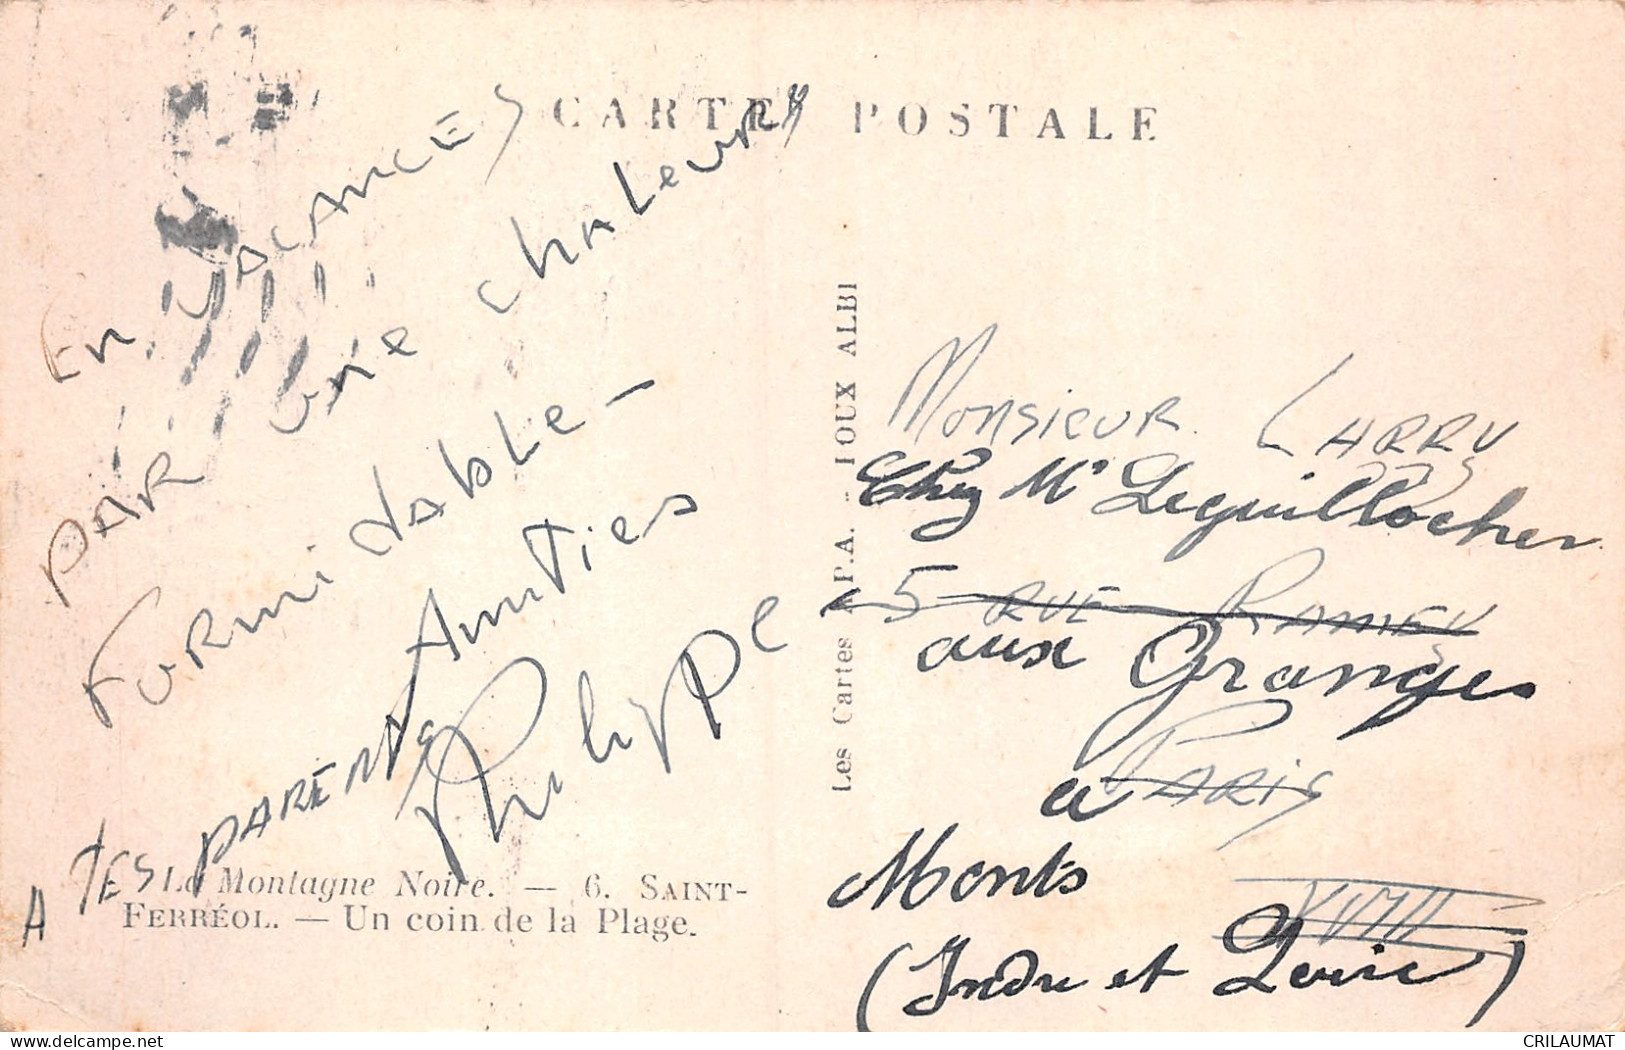 CARTE POSTALE
En VACANCES
PAR une chaleur
Formidable -
Amitiés
A TES PARENTS
Philippe
La Montagne Noire. — 6. SAINT-
FERRÉOL. — Un coin de la Plage.
Les Cartes A.P.A. - POUX ALBI
Monsieur LARRY
Chez Mr Leguillocher
5 RUE RAMEY
aux Granges
a PARIS
Monts
XVIII
(Indre et Loire)
delcampe.net
CRILAUMAT